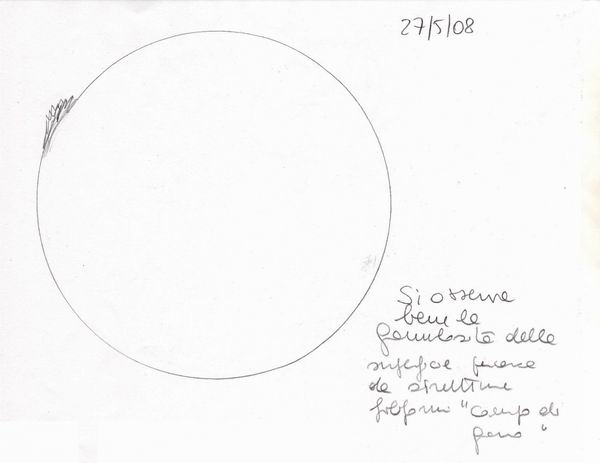 27/5/08
Si osserva
bene la
granulosità della
superficie
da strutture
filiformi "campo di
grano"